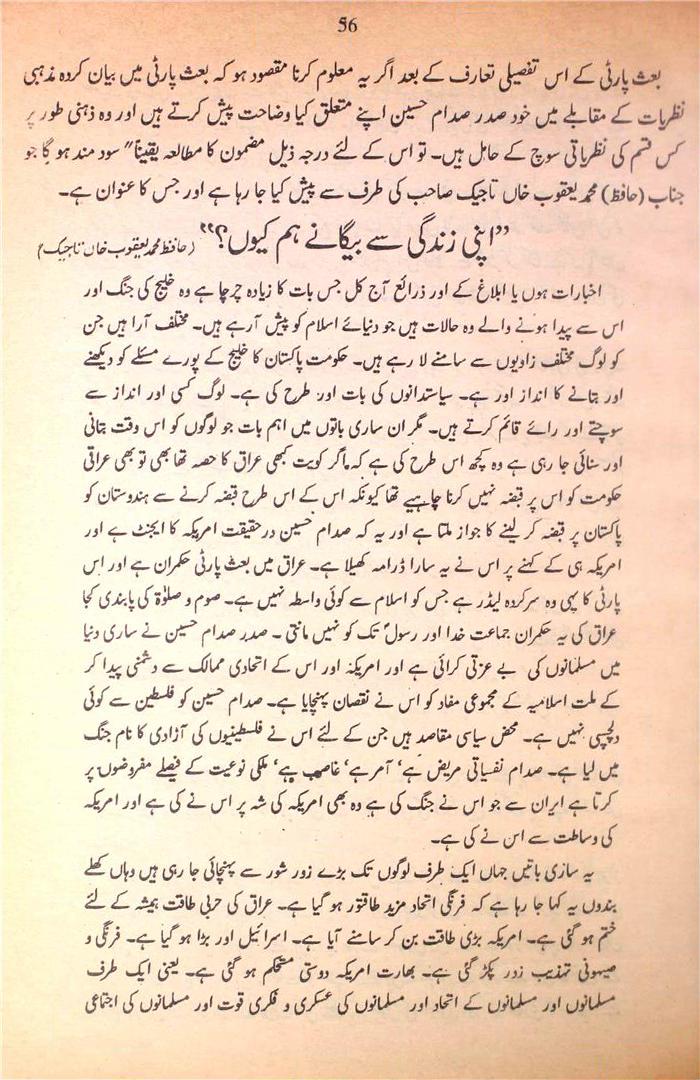 56
بعث پارٹی کے اس تفصیلی تعارف کے بعد اگر یہ معلوم کرنا مقصود ہو کہ بعث پارٹی میں بیان کردہ مذہبی
نظریات کے مقابلے میں خود صدر صدام حسین اپنے متعلق کیا وضاحت پیش کرتے ہیں اور وہ ذہنی طور پر
کس قسم کی نظریاتی سوچ کے حامل ہیں۔ تو اس کے لئے درجہ ذیل مضمون کا مطالعہ یقیناً" سود مند ہو گا جو
جناب (حافظ) محمد یعقوب خاں تاجیک صاحب کی طرف سے پیش کیا جا رہا ہے اور جس کا عنوان ہے۔
"اپنی زندگی سے بیگانے ہم کیوں؟" (حافظ محمد یعقوب خاں تاجیک)
اخبارات ہوں یا ابلاغ کے اور ذرائع آج کل جس بات کا زیادہ چرچا ہے وہ خلیج کی جنگ اور
اس سے پیدا ہونے والے وہ حالات ہیں جو دنیائے اسلام کو پیش آرہے ہیں۔ مختلف آرا ہیں جن
کو لوگ مختلف زاویوں سے سامنے لا رہے ہیں۔ حکومت پاکستان کا خلیج کے پورے مسئلے کو دیکھنے
اور بتانے کا انداز اور ہے۔ سیاستدانوں کی بات اور طرح کی ہے۔ لوگ کسی اور انداز سے
سوچتے اور رائے قائم کرتے ہیں۔ مگر ان ساری باتوں میں اہم بات جو لوگوں کو اس وقت بتائی
اور سنائی جا رہی ہے وہ کچھ اس طرح کی ہے کہ اگر کویت کبھی عراق کا حصہ تھا بھی تو بھی عراقی
حکومت کو اس پر قبضہ نہیں کرنا چاہیے تھا کیونکہ اس کے اس طرح قبضہ کرنے سے ہندوستان کو
پاکستان پر قبضہ کر لینے کا جواز ملتا ہے اور یہ کہ صدام حسین درحقیقت امریکہ کا ایجنٹ ہے اور
امریکہ ہی کے کہنے پر اس نے یہ سارا ڈرامہ کھیلا ہے۔ عراق میں بعث پارٹی حکمران ہے اور اس
پارٹی کا یہی وہ سرکردہ لیڈر ہے جس کو اسلام سے کوئی واسطہ نہیں ہے۔ صوم و صلوٰۃ کی پابندی کجا
عراق کی یہ حکمران جماعت خدا اور رسولؐ تک کو نہیں مانتی ۔ صدر صدام حسین نے ساری دنیا
میں مسلمانوں کی بے عزتی کرائی ہے اور امریکہ اور اس کے اتحادی ممالک سے دشمنی پیدا کر
کے ملت اسلامیہ کے مجموعی مفاد کو اس نے نقصان پہنچایا ہے۔ صدام حسین کو فلسطین سے کوئی
دلچسپی نہیں ہے۔ محض سیاسی مقاصد ہیں جن کے لئے اس نے فلسطینیوں کی آزادی کا نام جنگ
میں لیا ہے۔ صدام نفسیاتی مریض ہے، آمر ہے، غاصب ہے، ملکی نوعیت کے فیصلے مفروضوں پر
کرتا ہے ایران سے جو اس نے جنگ کی ہے وہ بھی امریکہ کی شہ پر اس نے کی ہے اور امریکہ
کی وساطت سے اس نے کی ہے۔
یہ ساری باتیں جہاں ایک طرف لوگوں تک بڑے زور شور سے پہنچائی جا رہی ہیں وہاں کھلے
بندوں یہ کہا جا رہا ہے کہ فرنگی اتحاد مزید طاقتور ہو گیا ہے۔ عراق کی حربی طاقت ہمیشہ کے لئے
ختم ہو گئی ہے۔ امریکہ بڑی طاقت بن کر سامنے آیا ہے۔ اسرائیل اور بڑا ہو گیا ہے۔ فرنگی و
صیہونی تہذیب زور پکڑ گئی ہے۔ بھارت امریکہ دوستی مستحکم ہو گئی ہے۔ یعنی ایک طرف
مسلمانوں اور مسلمانوں کے اتحاد اور مسلمانوں کی عسکری و فکری قوت اور مسلمانوں کی اجتماعی